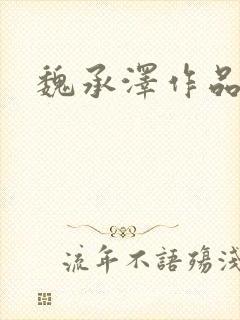 魏承澤作品
流年不語殤淺